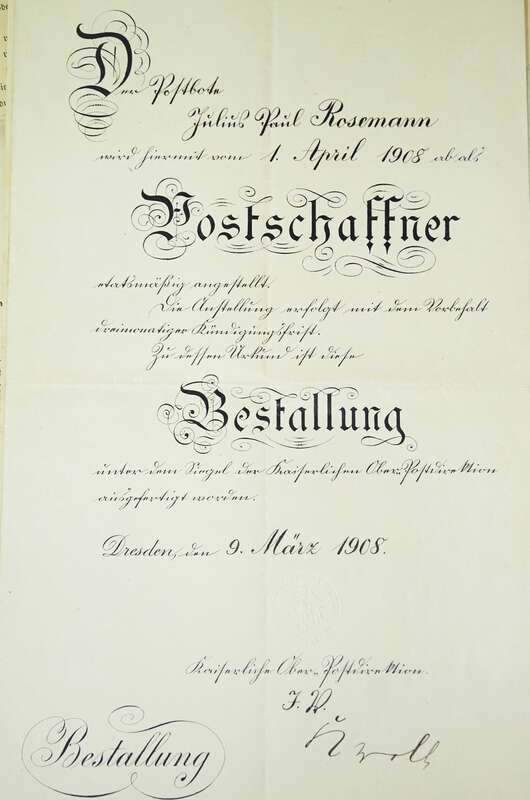 Der Postbote
Julius Paul Rosemann
wird hiermit vom 1. April 1908 ab als
Postschaffner
etatsmäßig angestellt.
Die Anstellung erfolgt mit dem Vorbehalt
dreimonatiger Kündigungsfrist.
Zu dessen Urkund ist diese
Bestallung
unter dem Siegel der Kaiserlichen Ober-Postdirektion
ausgefertigt worden.
Dresden, den 9. März 1908.
Kaiserliche Ober-Postdirektion.
I. V.
Bestallung